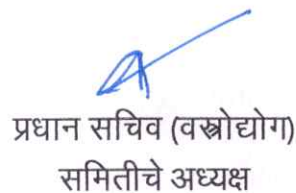 प्रधान सचिव (वस्त्रोद्योग)
समितीचे अध्यक्ष